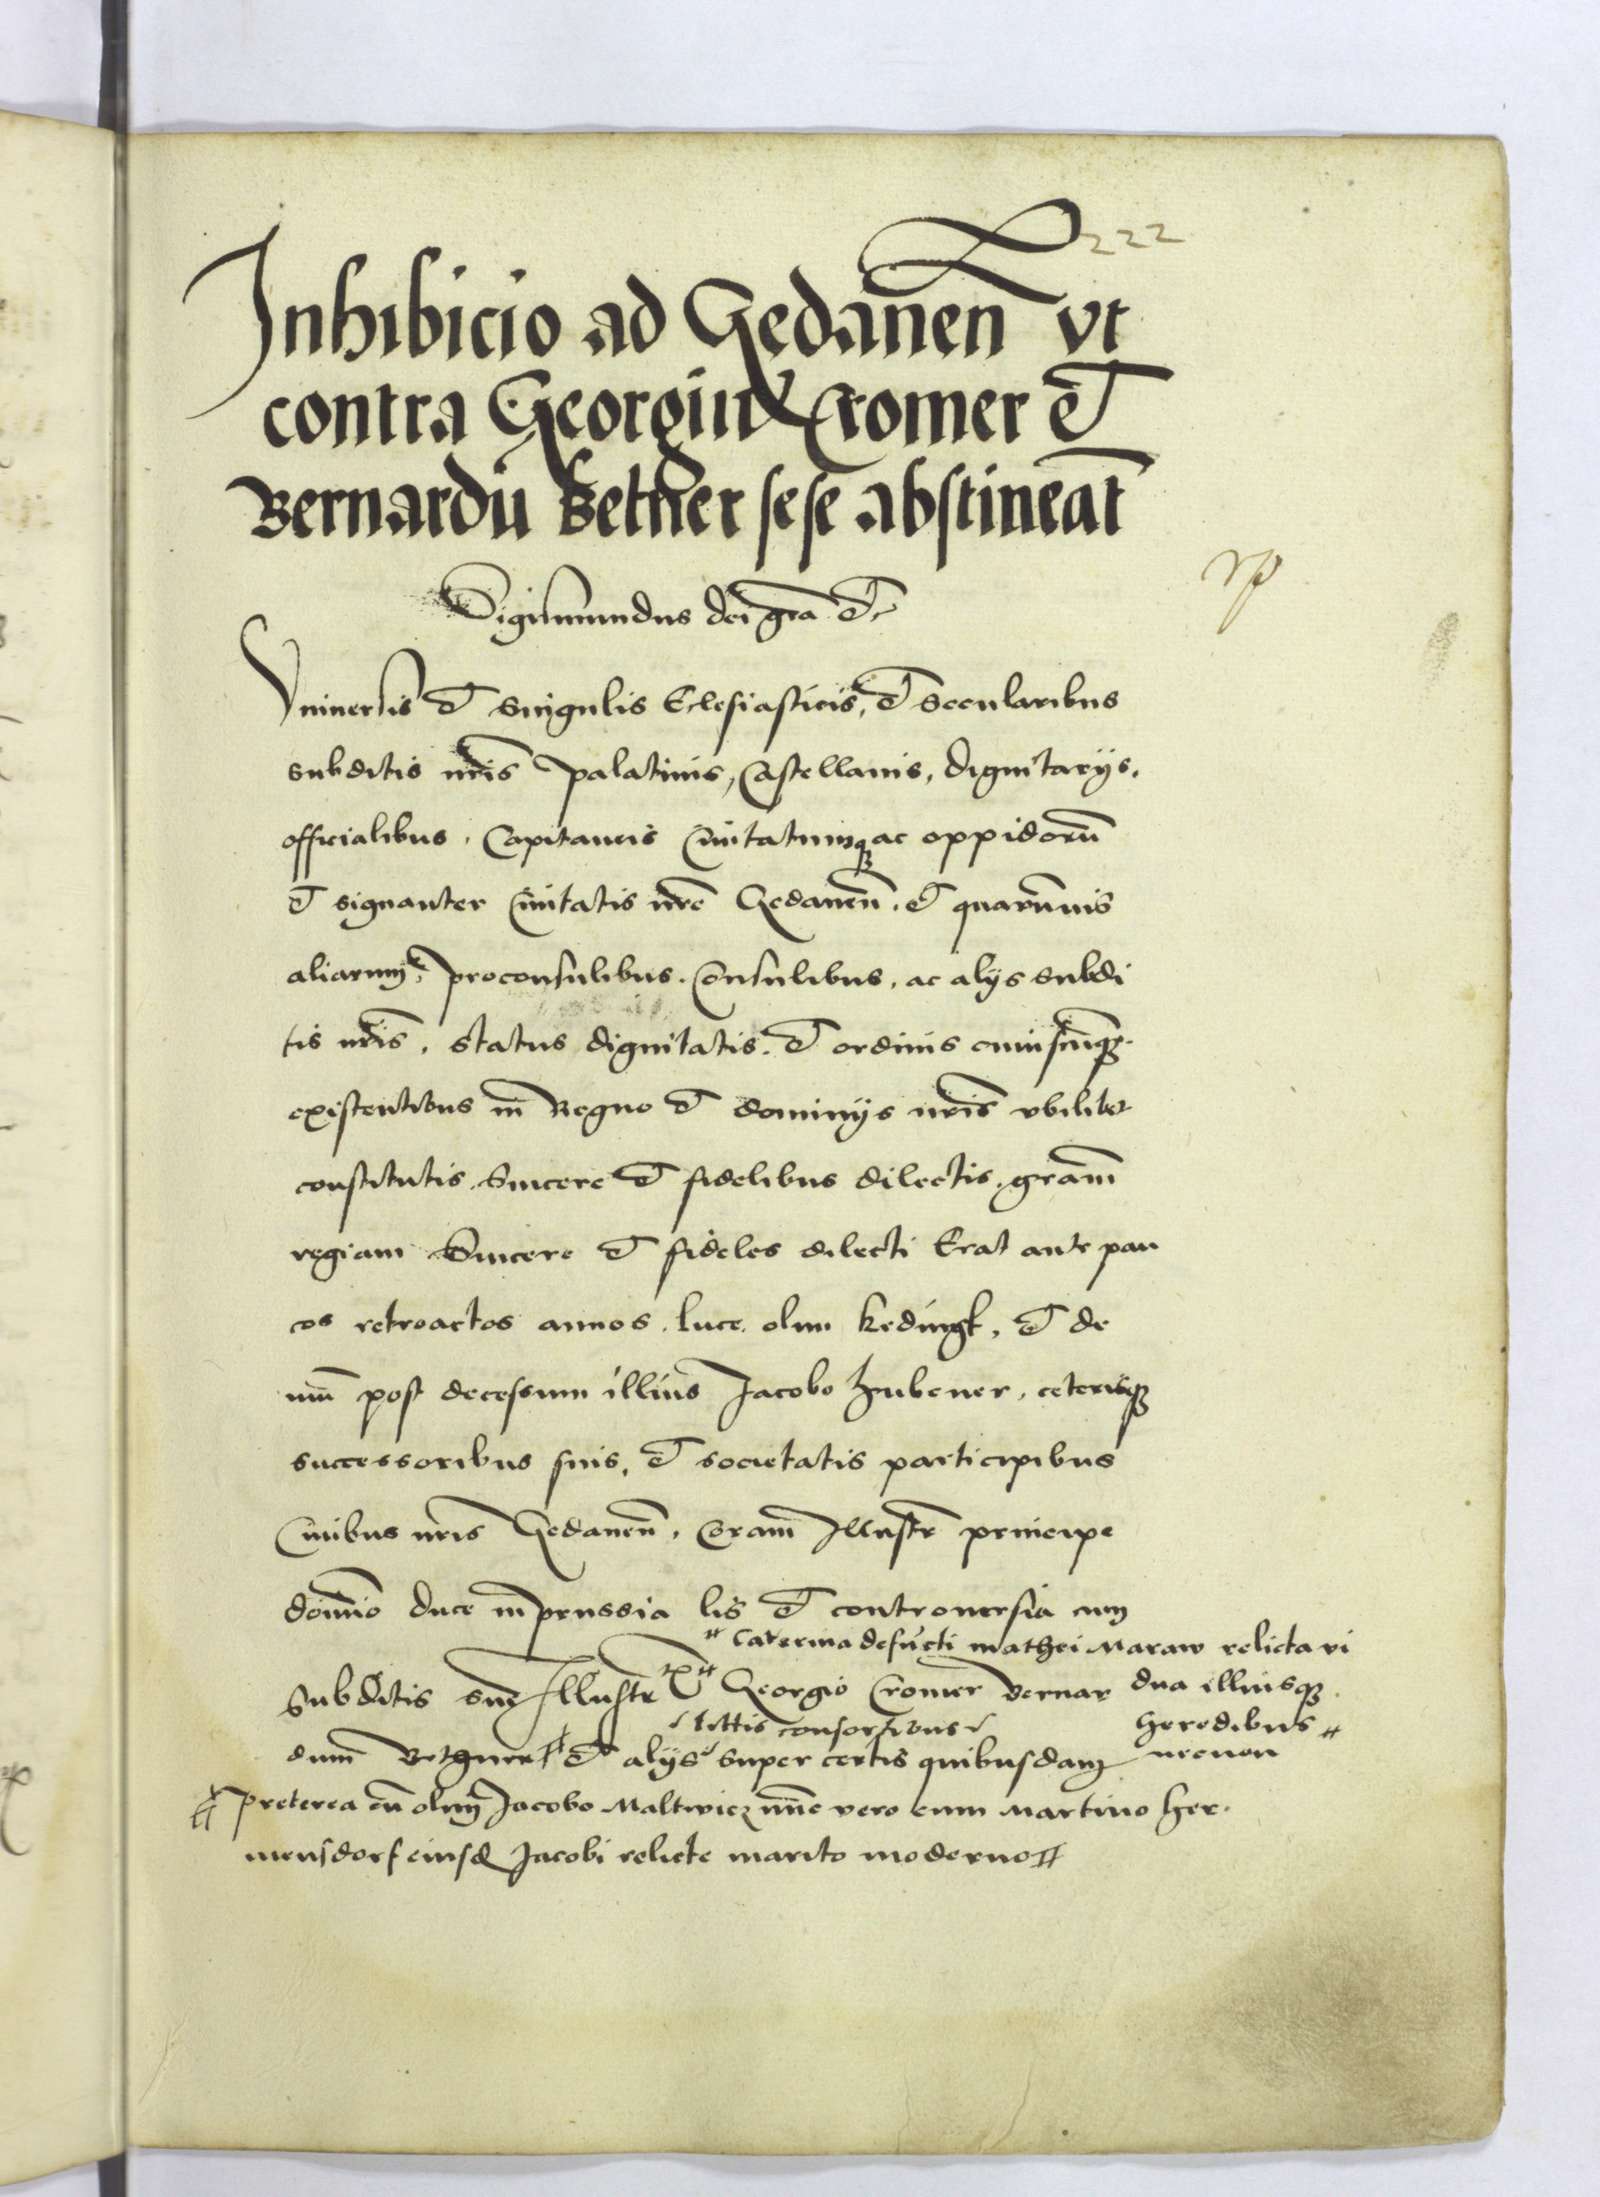 222
Inhibicio ad Gedanen̄ vt
contra Georgiū Cromer et
Bernardū Betner sese abstineāt
Sigismundus dei gr̄a etc
Vniuersis et singulis Eclesiasticis, et Secularibus
subditis nr̄is palatinis, Castellanis, dignitarijs,
officialibus, Capitaneis Ciuitatumq̨ ac oppidorū
et signanter Ciuitatis nr̄e Gedanen̄. et quarumuis
aliarum, proconsulibus. Consulibus, ac alijs subdi
tis nr̄is, status dignitatis. et ordinis cuiuscūq̨
existentibus in Regno et dominijs nr̄is vbilibet
constitutis. Sincere et fidelibus dilectis. gr̄am
regiam Sincere et fideles dilecti Erat ante pau
cos retroactos annos. luce olim kedingk, et de
mū post decessum illius Jacobo Hubener, ceterisq̨
successoribus suis, et societatis participibus
Ciuibus nr̄is Gedanen̄, Coram Illustr̄ principe
domīo duce in prussia lis et controuersia cum
# Caterina defūcti mathei Maraw relicta vi
Subditis sue Illustr̄ # Georgio Cromer Bernar dua illiusq̨
tittis consortibus heredibus #
dum Bethner # et alijs super certis quibusdam necnon
# preterea cū olim Jacobo Maltwicz nūc vero cum Martino Her
mensdorf eiusd Jacobi relicte marito moderno #